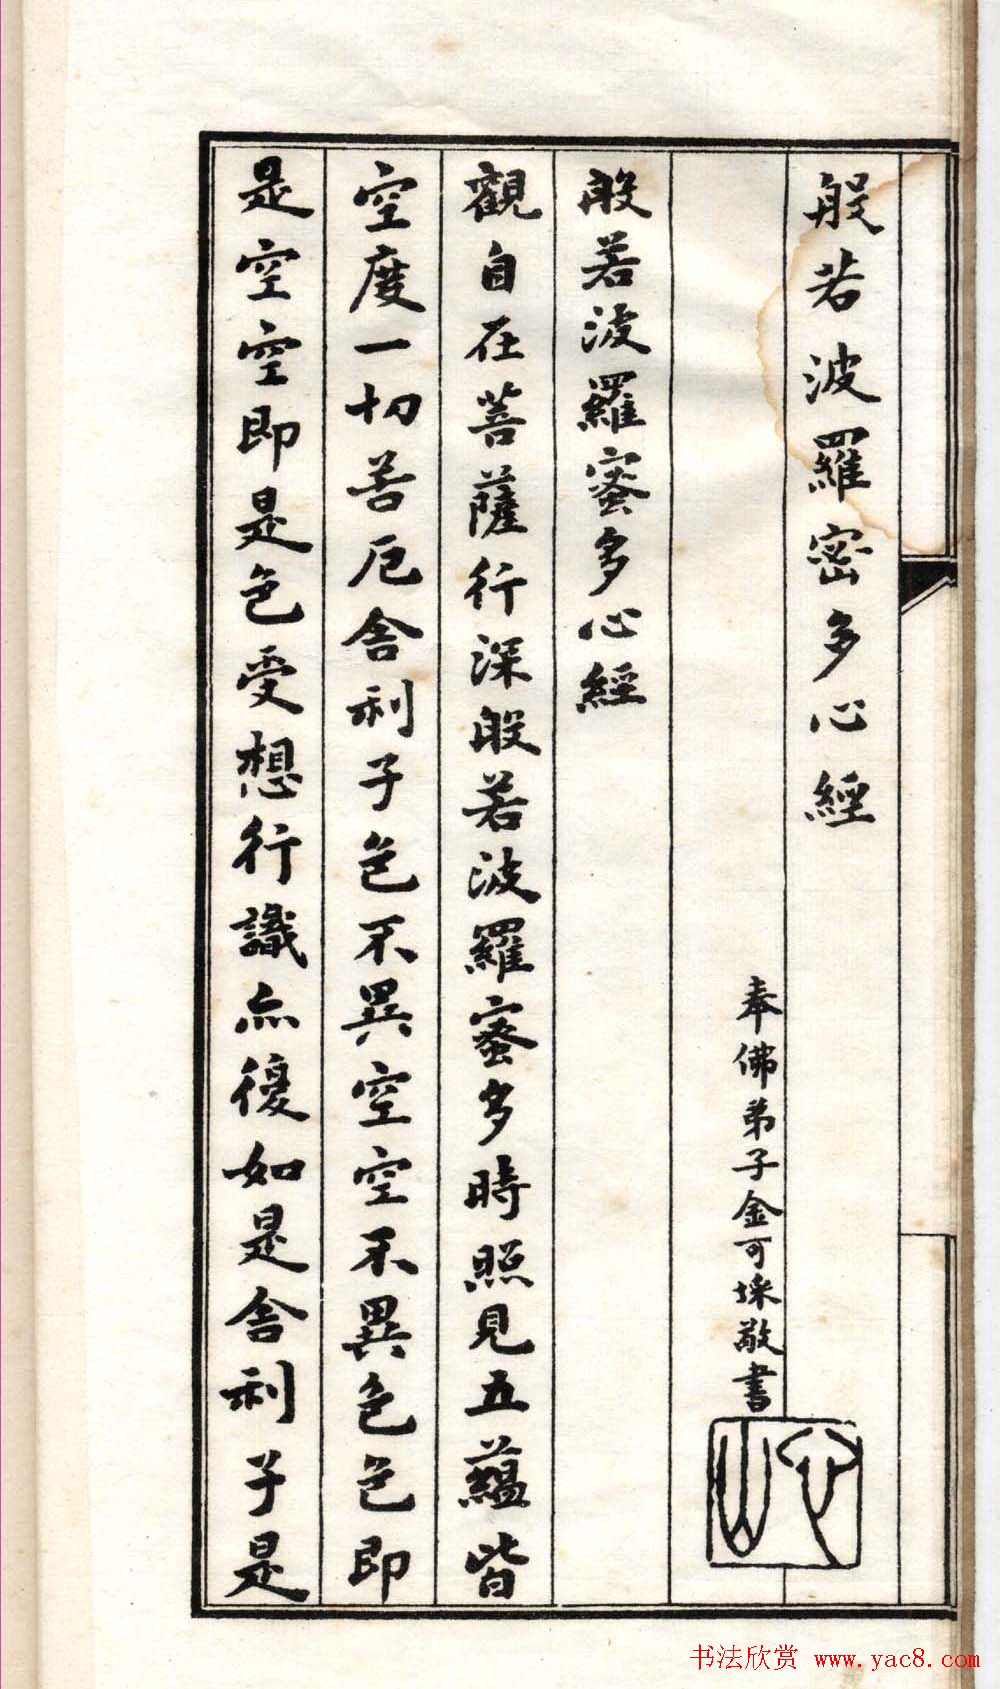 般若波羅密多心經
奉佛弟子金可埰敬書
般若波羅蜜多心經
觀自在菩薩行深般若波羅蜜多時照見五蘊皆
空度一切苦厄舍利子色不異空空不異色色即
是空空即是色受想行識亦復如是舍利子是
书法欣赏 www.yac8.com